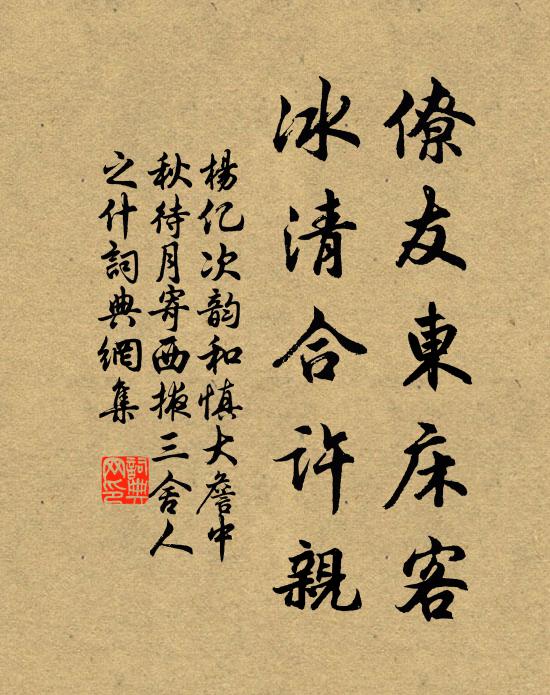 僚友東床客
冰清合許親
楊亿次韵和慎大詹中
秋待月寄西掖三舍人
之什詞典網集
詞典網印